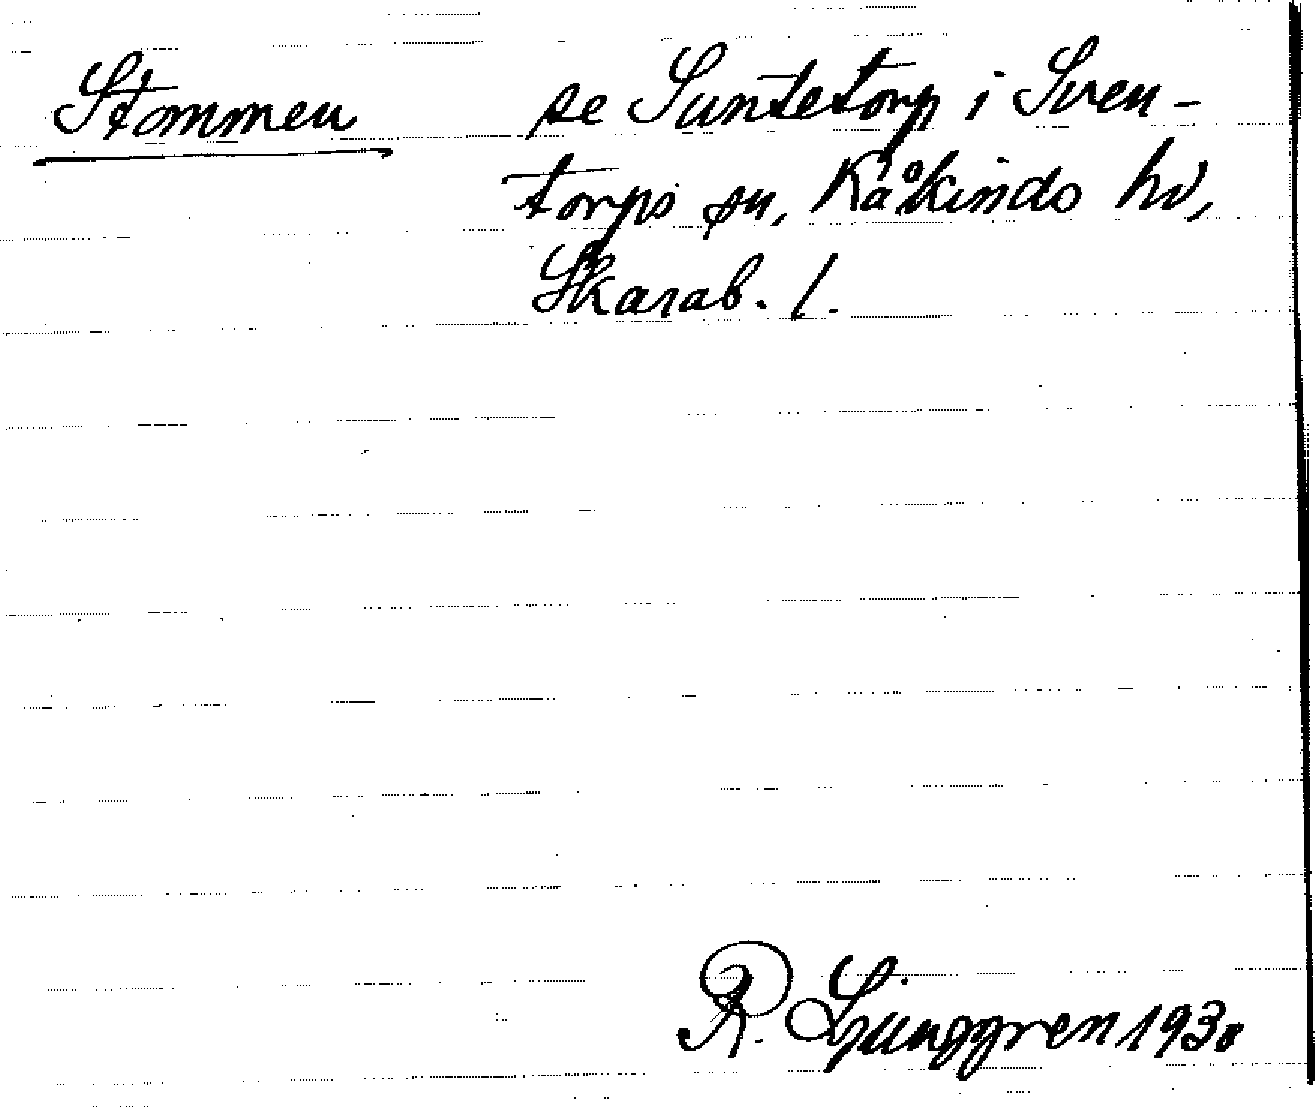 Stommen se Suntetorp i Sven-
torps sn, Kåkinds hd,
Skarab. l.
R. Ljunggren 1930